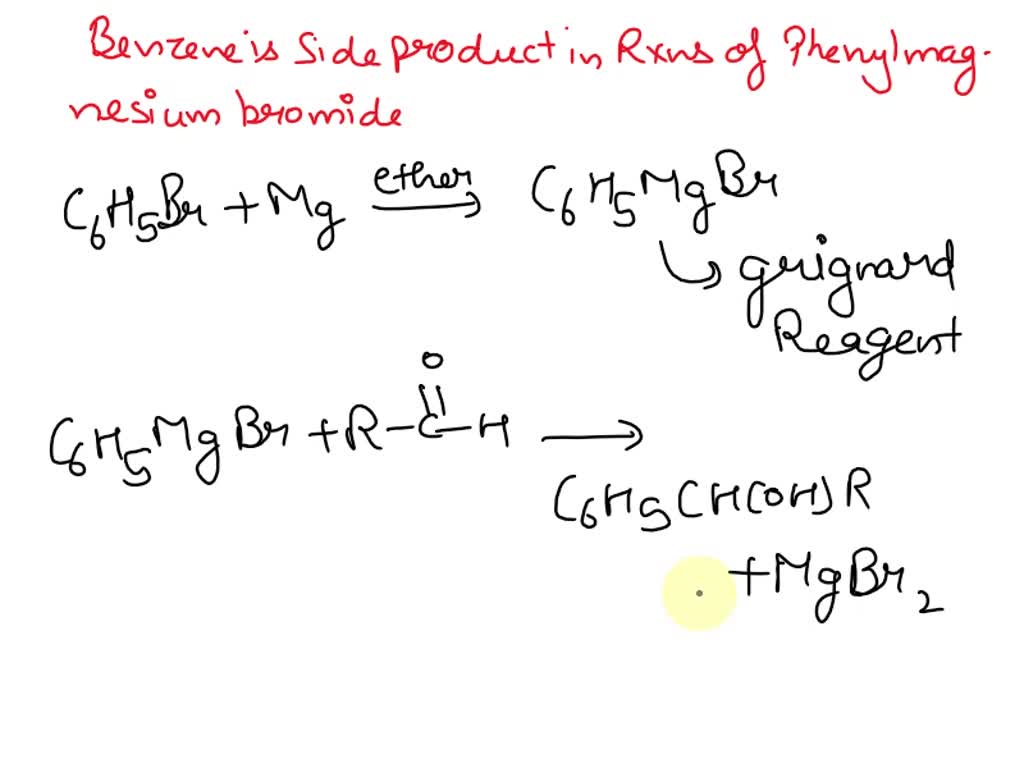 Benzene is Side product in Rxns of Phenylmag-
nesium bromide
C6H5Br + Mg ether → C6H5MgBr
↳ grignard
Reagent
O
C6H5MgBr + R-C-H →
C6H5CH(OH)R
+ MgBr2